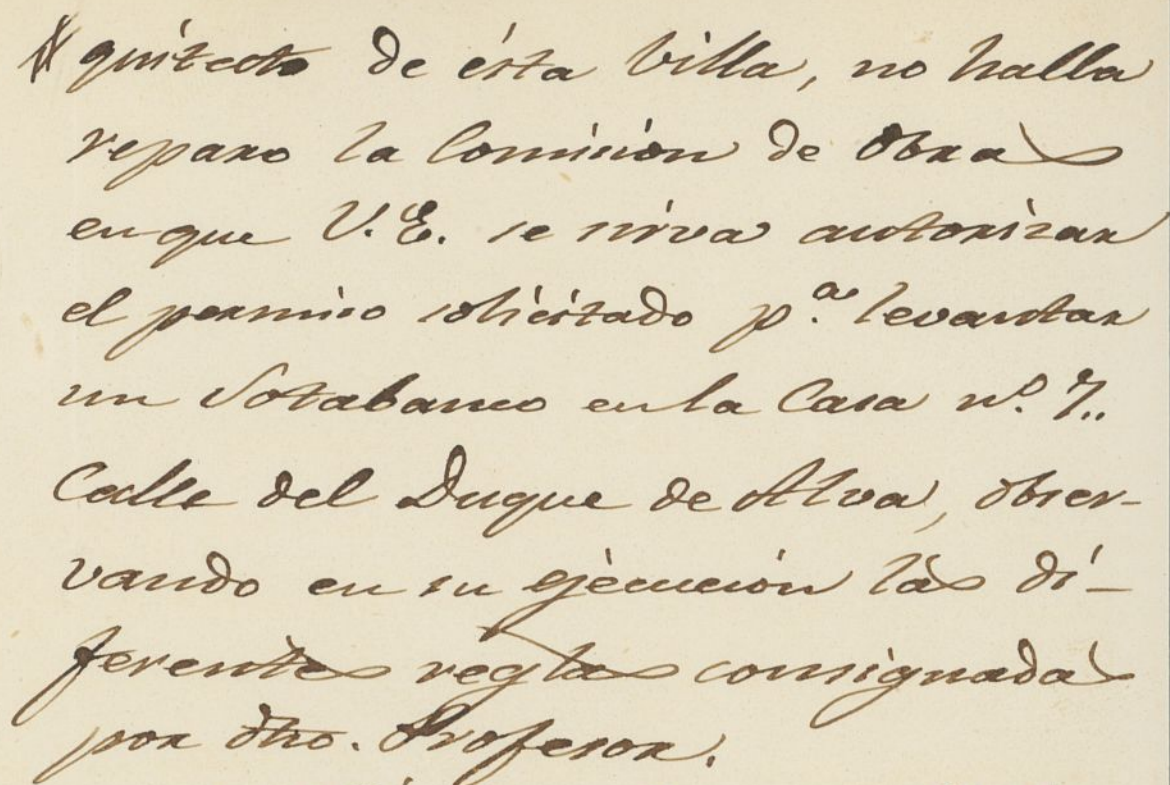 quitecto de ésta Villa, no halla
reparo la Comision de Obras
en que V.E. se sirva autorizar
el permiso solicitado p.ª levantar
un Sotabanco en la Casa nº. 7..
Calle del Duque de Alva, obser-
vando en su ejecución las di-
ferentes reglas consignadas
por dho. Profesor.